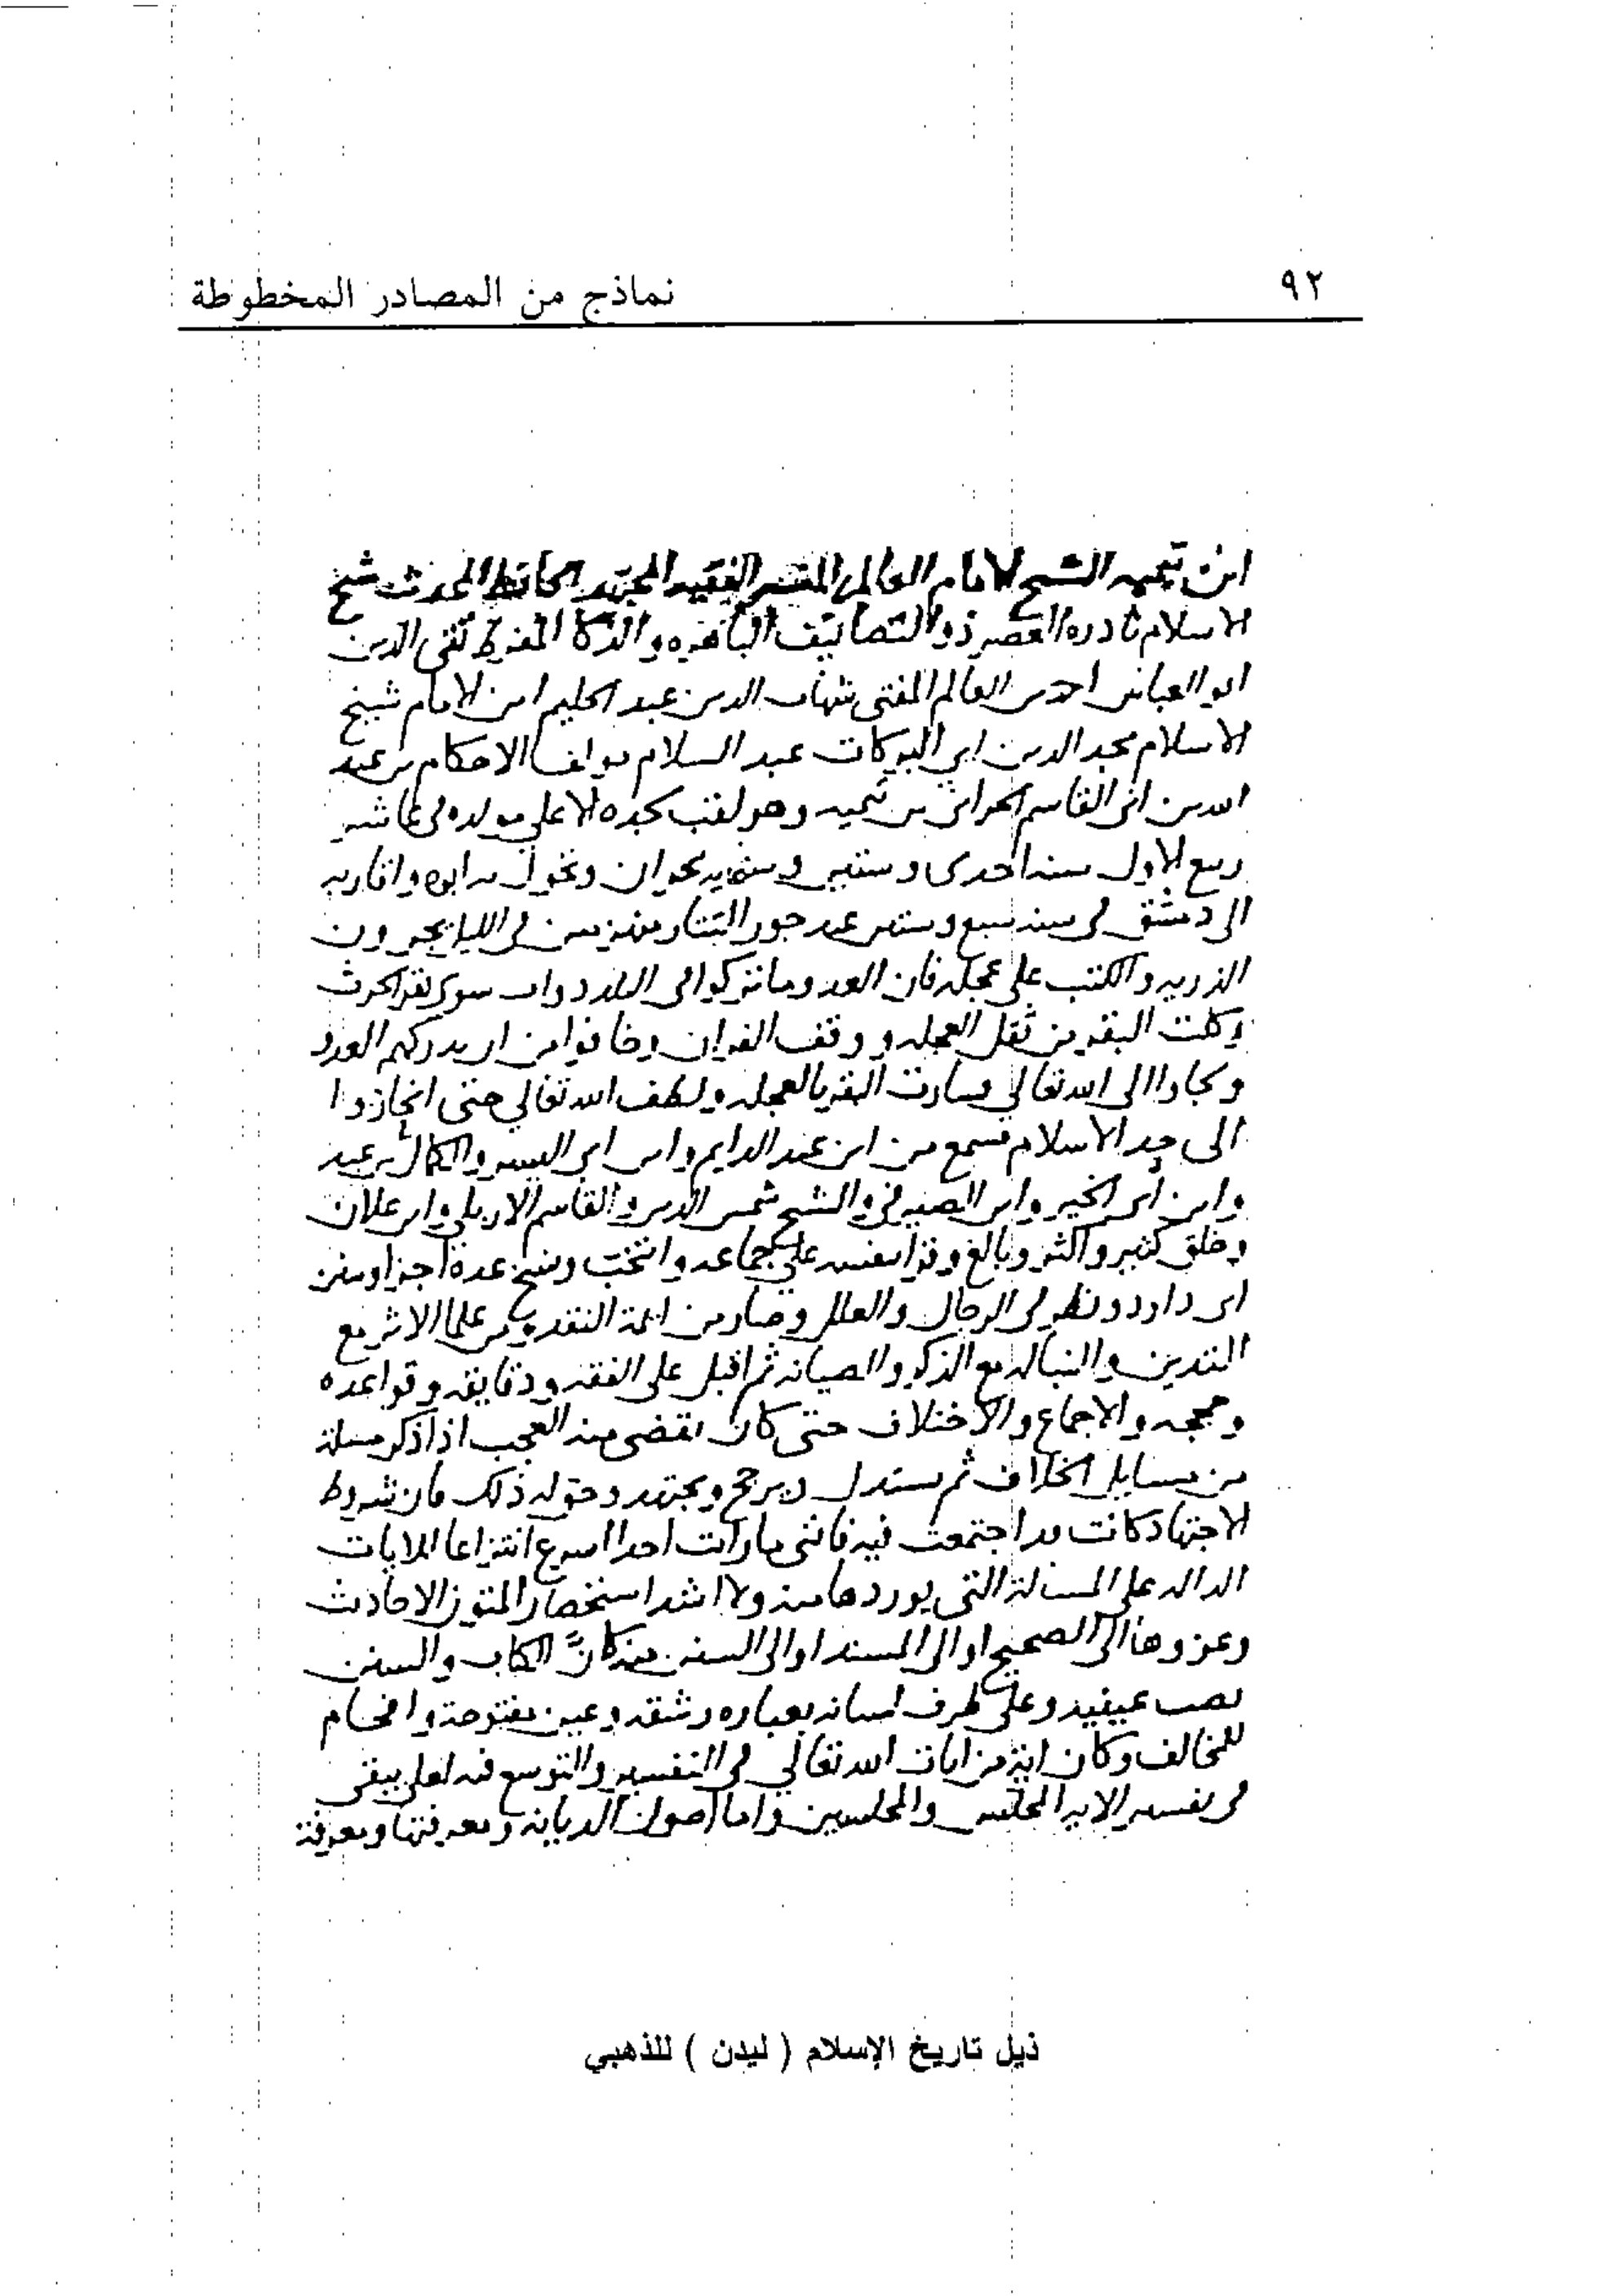 ٩٢
نماذج من المصادر المخطوطة
ابن تيميه الشيخ الامام العالم المفسر الفقيه المجتهد الحافظ المحدث شيخ
الاسلام نادره العصر ذو التصانيف الباهره والذكا المفرط تقي الدين
ابو العباس احمد بن العالم المفتى شهاب الدين عبد الحليم ابن الامام شيخ
الاسلام مجد الدين ابي البركات عبد السلام مولف الاحكام بن عبد
الله بن ابى القاسم الحرانى بن تيميه وهو لقب لجده الاعلى مولده فى عاشر
ربيع الاول سنه احدى وستين وستمايه بحران وتحول به ابوه واقاربه
الى دمشق فى سنه سبع وستين عند جور التتار منهزمين فى الليل يجرون
الذريه والكتب على عجله فان العدو ما تركوا فى البلد دواب سوى بقر الحرث
وكلت البقر من ثقل العجله ووقف الفران وخافوا من ان يدركهم العدو
ولجاوا الى الله تعالى فسارت البقر بالعجله ولطف الله تعالي حتى انحازوا
الى حد الاسلام فسمع من ابن عبد الدايم وابن ابى اليسر والكمال بن عبد
وابن ابى الخير وابن الصيرفى والشيخ شمس الدين والقاسم الاربلي وابن علان
وخلق كثير واكثر وبالغ وقرا بنفسه على جماعه وانتخب ونسخ عدة اجزا وسنن
ابى داود ونظر فى الرجال والعلل وصار من ايمة النقد ومن علما الاثر مع
التدين والنباله مع الذكر والصيانه ثم اقبل على الفقه ودقايقه وقواعده
وحججه والاجماع والاختلاف حتى كان يقضى منه العجب اذا ذكر مسلة
من مسايل الخلاف ثم يستدل ويرجح ويجتهد وحق له ذلك فان شروط
الاجتهاد كانت قد اجتمعت فيه فاننى ما رايت احدا اسرع انتزاعا للايات
الداله على المسئلة التى يوردها منه ولا اشد استحضارا لمتون الاحاديث
وعزوها الى الصحيح او الى المسند او الى السنن منه كانَّ الكتاب والسنن
نصب عينيه وعلى طرف لسانه بعباره رشقه وعين مفتوحة وافحام
للمخالف وكان اية من ايات الله تعالي فى التفسير والتوسع فيه لعله يبقى
فى تفسير الايه المجلس والمجلسين واما اصول الديانه ومعرفتها ومعرفة
ذيل تاريخ الإسلام ( ليدن ) للذهبي